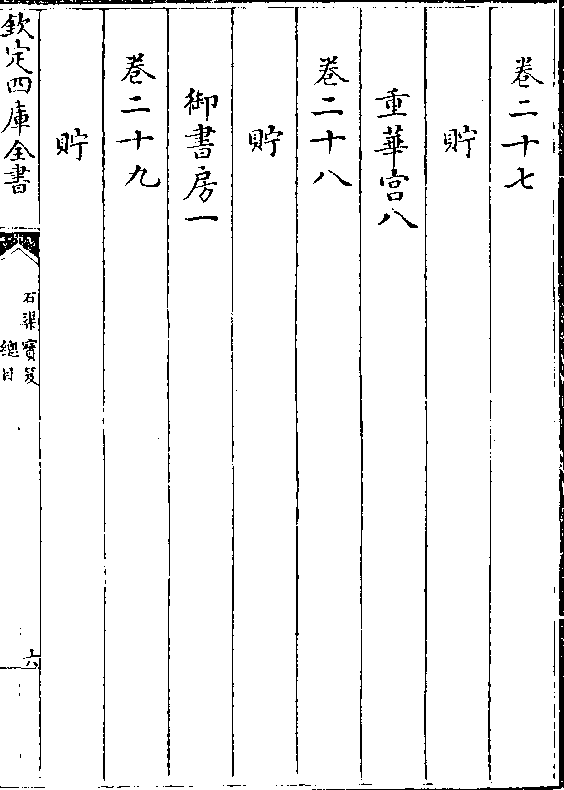 卷二十七
貯
重華宮八
卷二十八
貯
御書房一
卷二十九
貯
欽定四庫全書
石渠寶笈
總目
六